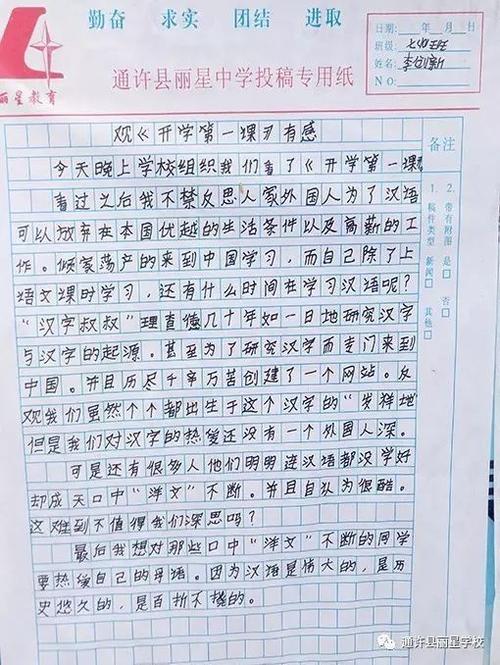 勤奋 求实 团结 进取
丽星教育
通许县丽星中学投稿专用纸
日期: 年 月 日
班级:
姓名: 李创新
NO:
观《开学第一课》有感
今天晚上学校组织我们看了《开学第一课》
看过之后我不禁反思人家外国人为了汉语
可以放弃在本国优越的生活条件以及高薪的工
作。倾家荡产的来到中国学习,而自己除了上
语文课时学习,还有什么时间在学习汉语呢?
“汉字叔叔”理查德几十年如一日地研究汉字
与汉字的起源。甚至为了研究汉字而专门来到
中国。并且历尽千辛万苦创建了一个网站。反
观我们虽然个个都出生于这个汉字的“发祥地
但是我们对汉字的热爱还没有一个外国人深。
可是还有很多人他们明明连汉语都没学好
却成天口中“洋文”不断。并且自认为很酷。
这难到不值得我们深思吗?
最后我想对那些口中“洋文”不断的同学
要热爱自己的母语。因为汉语是伟大的,是历
史悠久的,是百折不挠的。
备注
1. 稿件类型 新闻□ 其他□
2. 带有附图 是□ 否□
通许县丽星学校